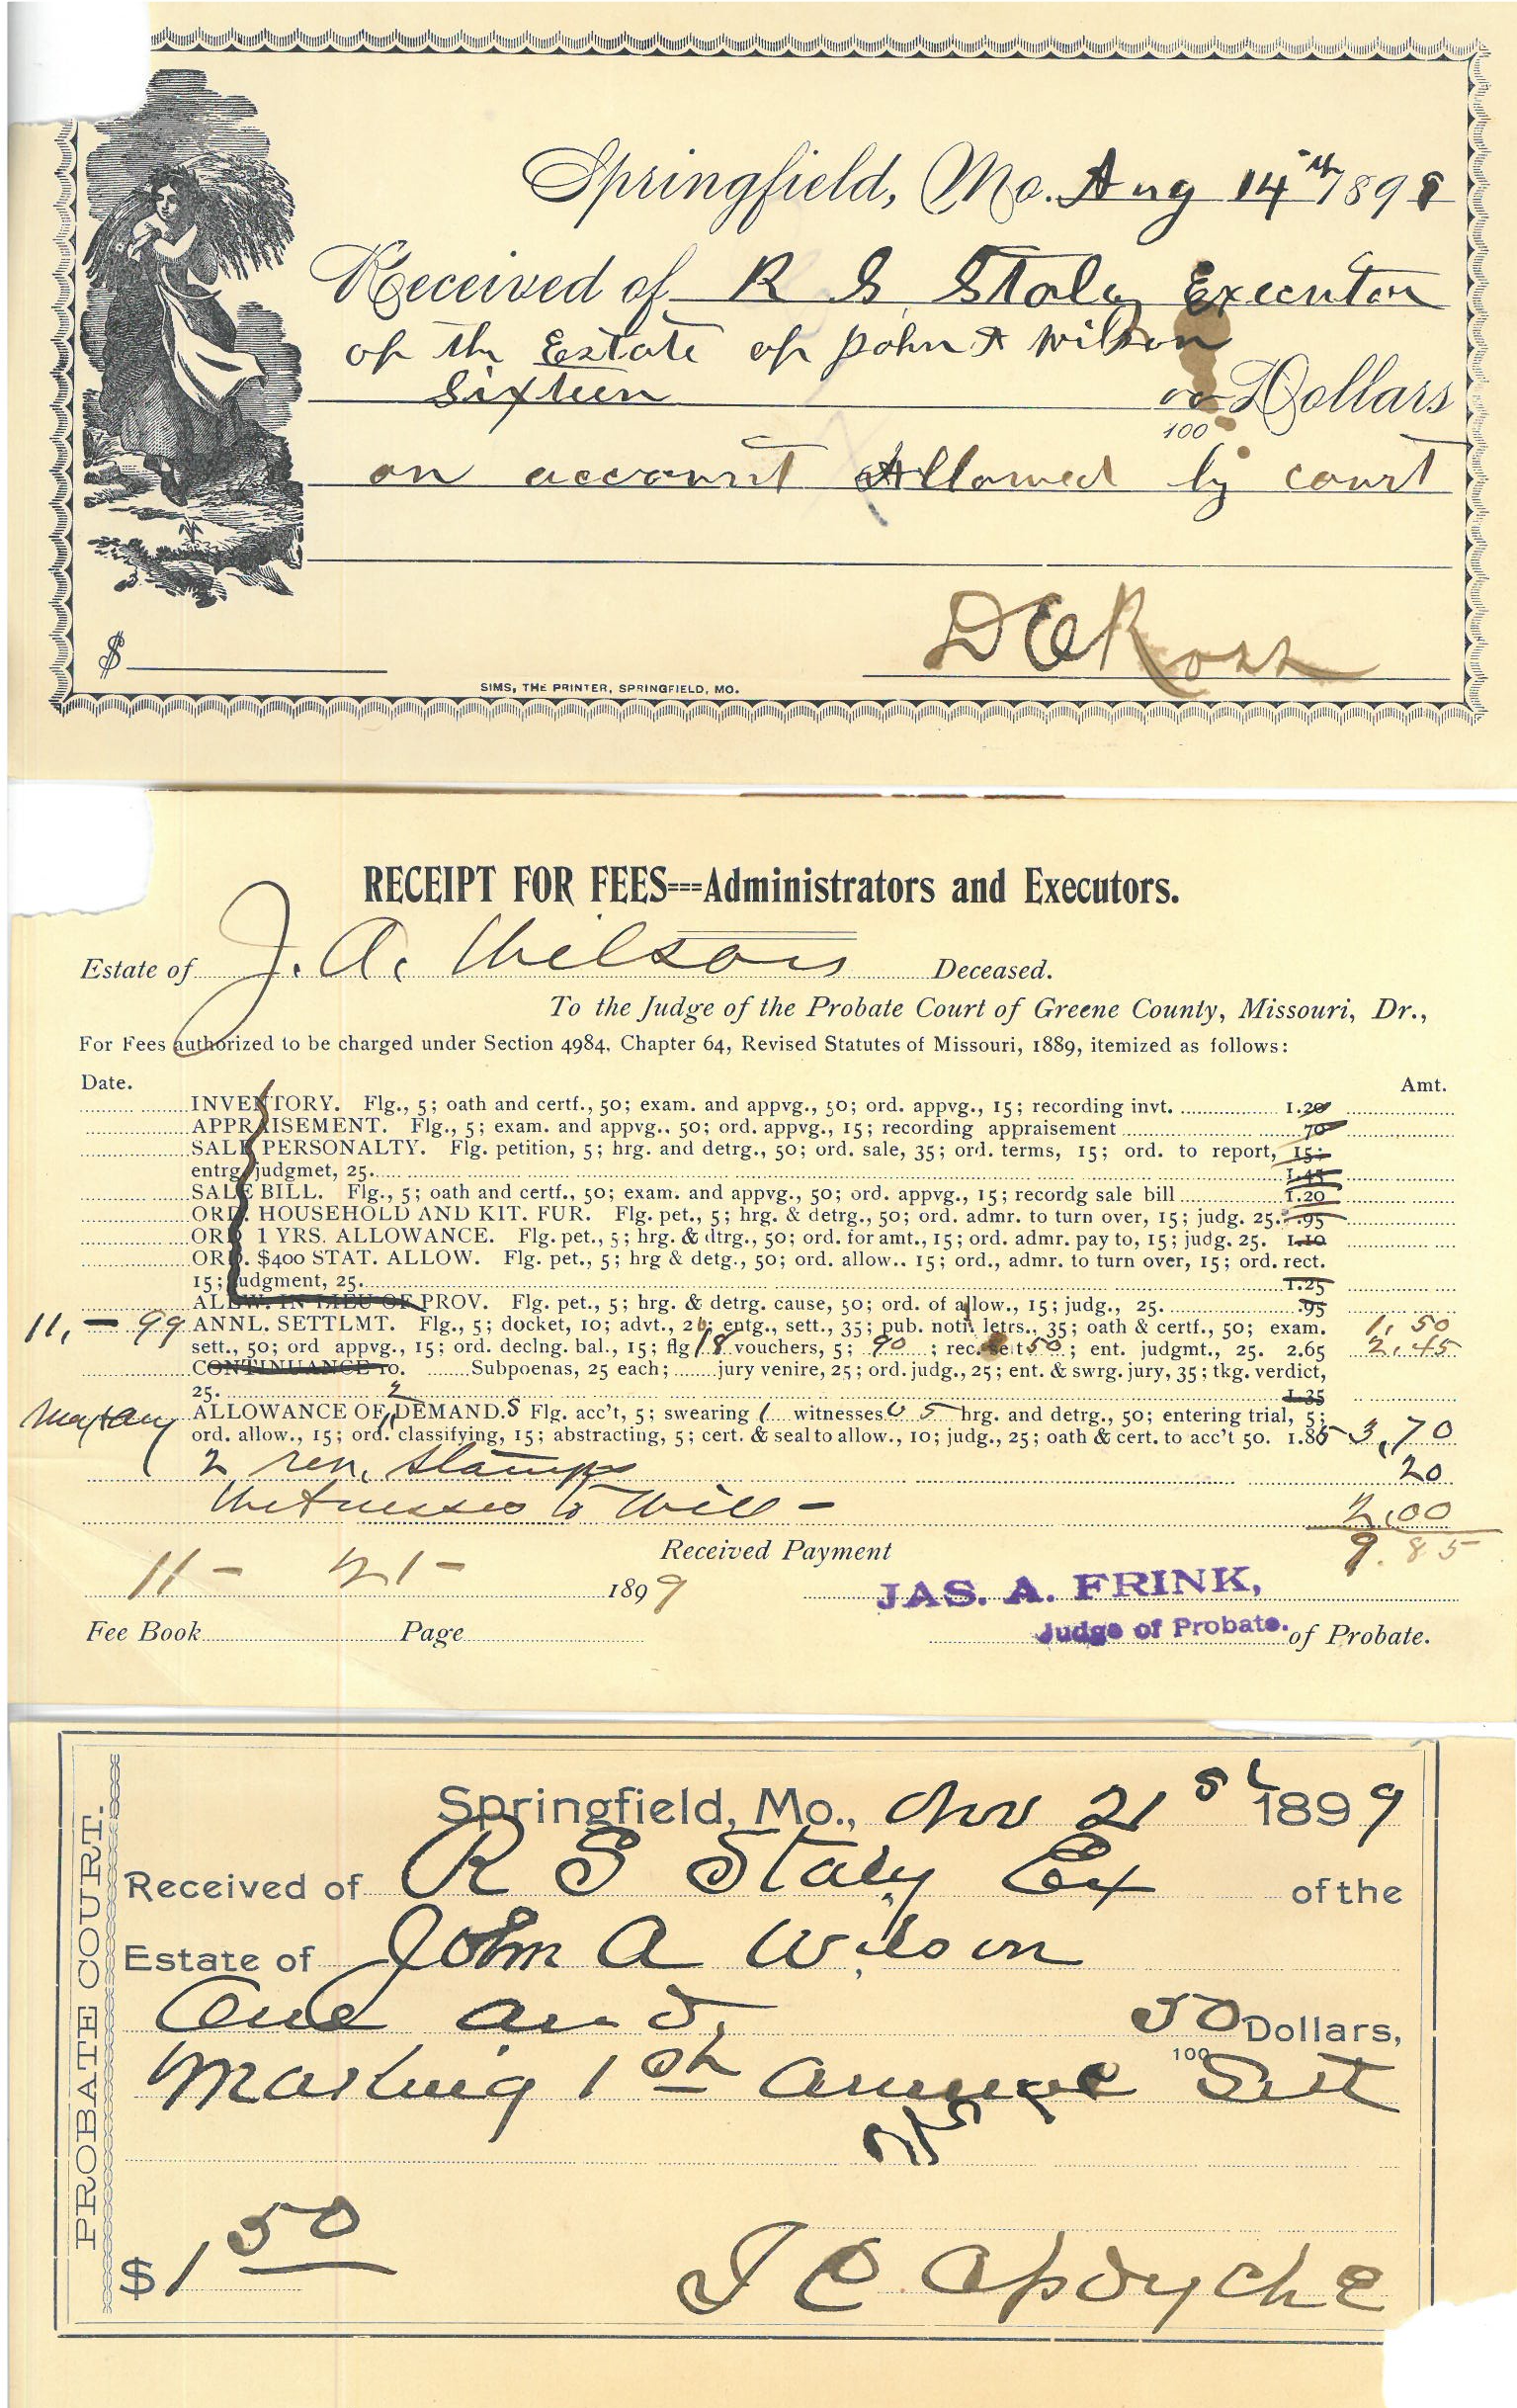 Springfield, Mo. Aug 14th 1899
Received of R S Staley Executor
of the Estate of John A Wilson
Sixteen 00/100 Dollars
on account Allowed by court
$
D E Ross
SIMS, THE PRINTER, SPRINGFIELD, MO.
RECEIPT FOR FEES===Administrators and Executors.
Estate of J. A. Wilson Deceased.
To the Judge of the Probate Court of Greene County, Missouri, Dr.,
For Fees authorized to be charged under Section 4984, Chapter 64, Revised Statutes of Missouri, 1889, itemized as follows:
Date. Amt.
INVENTORY. Flg., 5; oath and certf., 50; exam. and appvg., 50; ord. appvg., 15; recording invt. 1.20
APPRAISEMENT. Flg., 5; exam. and appvg., 50; ord. appvg., 15; recording appraisement 70
SALE PERSONALTY. Flg. petition, 5; hrg. and detrg., 50; ord. sale, 35; ord. terms, 15; ord. to report, 15;
entrg judgmet, 25. 1.45
SALE BILL. Flg., 5; oath and certf., 50; exam. and appvg., 50; ord. appvg., 15; recordg sale bill 1.20
ORD. HOUSEHOLD AND KIT. FUR. Flg. pet., 5; hrg. & detrg., 50; ord. admr. to turn over, 15; judg. 25. .95
ORD 1 YRS. ALLOWANCE. Flg. pet., 5; hrg. & dtrg., 50; ord. for amt., 15; ord. admr. pay to, 15; judg. 25. 1.10
ORD. $400 STAT. ALLOW. Flg. pet., 5; hrg & detg., 50; ord. allow.. 15; ord., admr. to turn over, 15; ord. rect.
15; judgment, 25. 1.25
ALLOW. IN LIEU OF PROV. Flg. pet., 5; hrg. & detrg. cause, 50; ord. of allow., 15; judg., 25. .95
11, - 99 ANNL. SETTLMT. Flg., 5; docket, 10; advt., 20; entg., sett., 35; pub. notn letrs., 35; oath & certf., 50; exam. 1,50
sett., 50; ord appvg., 15; ord. declng. bal., 15; flg 18 vouchers, 5; 90; rec. sett 50; ent. judgmt., 25. 2.65 2,45
CONTINUANCE 10. Subpoenas, 25 each; jury venire, 25; ord. judg., 25; ent. & swrg. jury, 35; tkg. verdict,
25. 1.35
ALLOWANCE OF 2 DEMAND.S Flg. acc't, 5; swearing 1 witnesses 5 hrg. and detrg., 50; entering trial, 5;
ord. allow., 15; ord. classifying, 15; abstracting, 5; cert. & seal to allow., 10; judg., 25; oath & cert. to acc't 50. 1.85 3,70
2 rev. stamps 20
Witnesses to Will - 2,00
9.85
Received Payment
11 - 21 - 1899
JAS. A. FRINK,
Judge of Probate. of Probate.
Fee Book Page
PROBATE COURT.
Springfield, Mo., Nov 21st 1899
Received of R S Staley Ex of the
Estate of John A Wilson
One and 50/100 Dollars,
Making 1st Annual Sett
$1 50
J C Opdycke